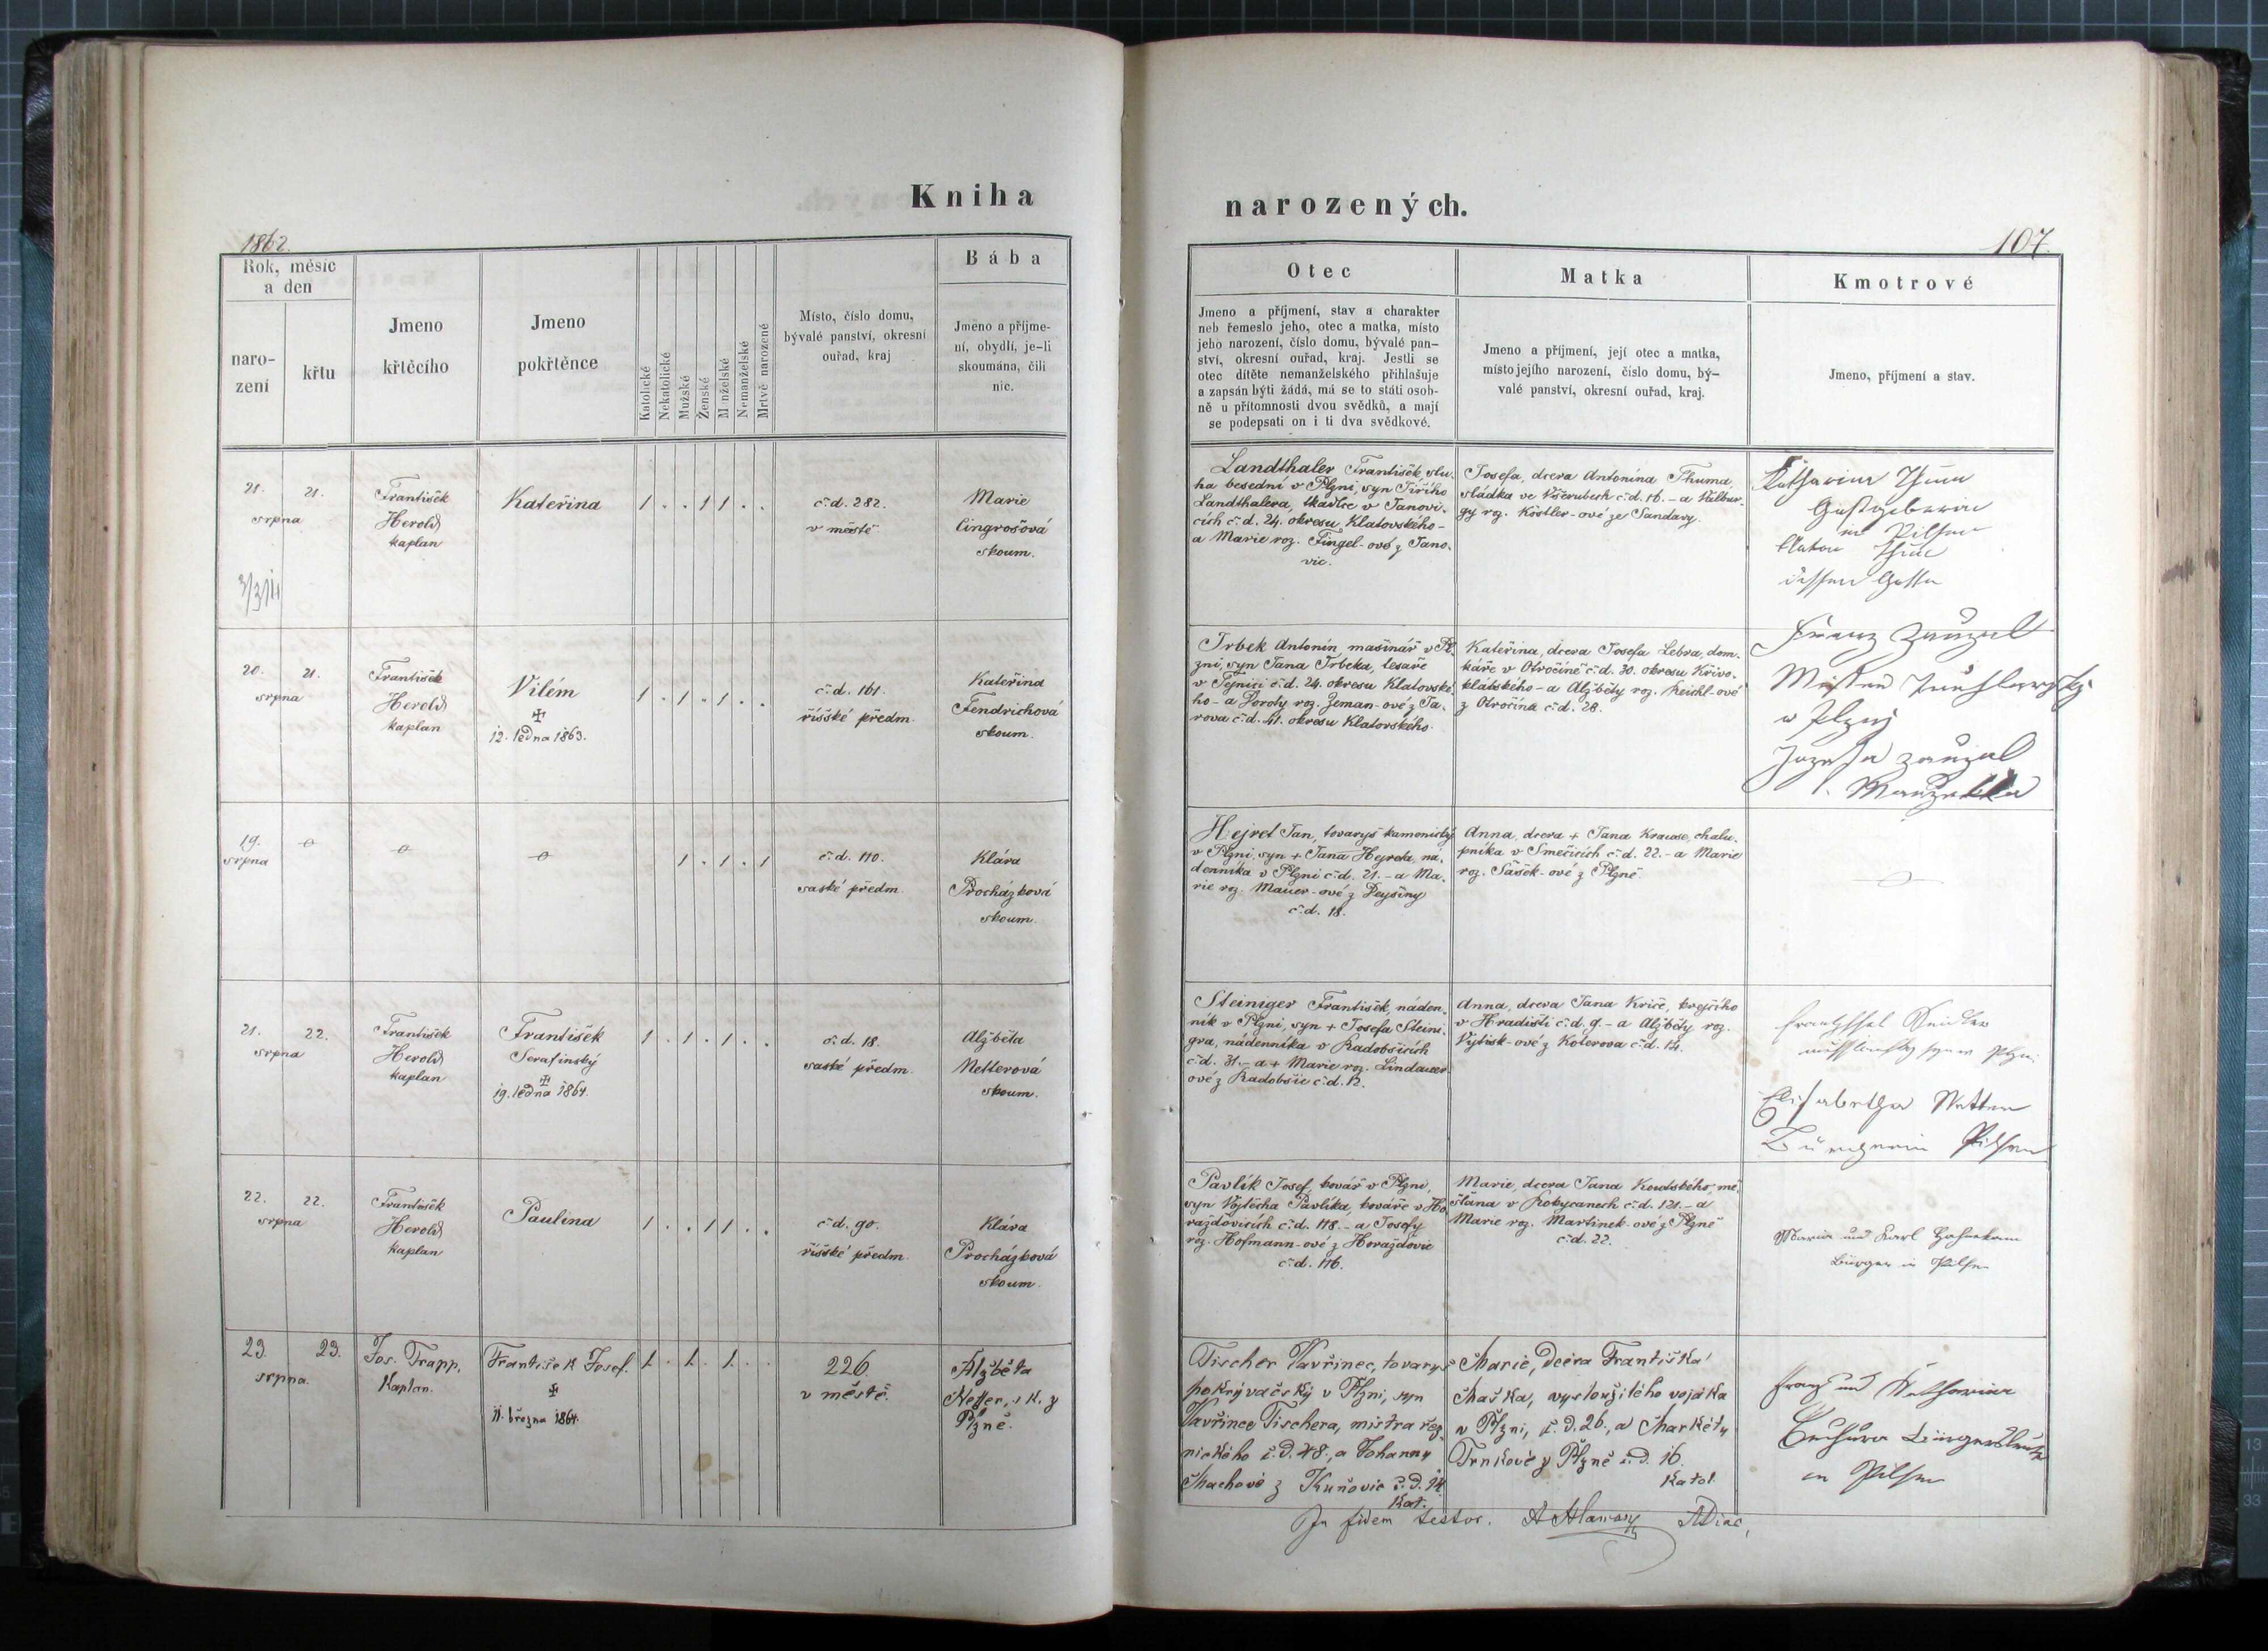 Kniha
narozených.
1862.
107
Rok, měsíc
a den
naro-
zení
křtu
Jmeno
křtěcího
Jmeno
pokřtěnce
Katolické
Nekatolické
Mužské
Ženské
M nželské
Nemanželské
Mrtvě narozené
Místo, číslo domu,
bývalé panství, okresní
ouřad, kraj
Bába
Jméno a příjme-
ní, obydlí, je-li
skoumána, čili
nic.
Otec
Jmeno a příjmení, stav a charakter
neb řemeslo jeho, otec a matka, místo
jeho narození, číslo domu, bývalé pan-
ství, okresní ouřad, kraj. Jestli se
otec dítěte nemanželského přihlašuje
a zapsán býti žádá, má se to státi osob-
ně u přítomnosti dvou svědků, a mají
se podepsati on i ti dva svědkové.
Matka
Jmeno a příjmení, její otec a matka,
místo jejího narození, číslo domu, bý-
valé panství, okresní ouřad, kraj.
Kmotrové
Jmeno, příjmení a stav.
21. 21.
srpna
František
Herold
kaplan
Kateřina
1 . . 1 1 . .
č.d. 282.
v městě
Marie
Cingrošová
skoum.
Landthaler František, slu-
ha besední v Plzni, syn Jiřího
Landthalera, tkadlce v Janovi-
cích č.d. 24. okresu Klatovského -
a Marie roz. Fingel-ové z Jano-
vic.
Josefa, dcera Antonína Thuma,
sládka ve Všerubech č.d. 16. - a Walbur-
gy roz. Köstler-ové ze Sandavy.
Katharina Thum
Gastgeberin
in Pilsen
Anton Thum
dessen Gatte
20. 21.
srpna
František
Herold
kaplan
Vilém
12. ledna 1863.
1 . 1 . 1 . .
č.d. 161.
říšské předm.
Kateřina
Fendrichová
skoum.
Trbek Antonín, mašinář v Pl-
zni, syn Jana Trbeka, tesaře
v Týnici č.d. 24. okresu Klatovské-
ho - a Doroty roz. Zeman-ové z Ja-
rova č.d. 41. okresu Klatovského.
Kateřina, dcera Josefa Lebra, dom-
káře v Otročíně č.d. 30. okresu Křivo-
klátského - a Alžběty roz. Reichl-ové
z Otročína č.d. 28.
Franz Zaužal
w Plzni
Jozefa Zaužal
Manželka
19.
srpna
1 . 1 . 1
č.d. 110.
saské předm.
Klára
Procházková
skoum.
Hejret Jan, tovaryš kamenický
v Plzni, syn + Jana Hejreta, ná-
denníka v Plzni č.d. 21. - a Ma-
rie roz. Mauer-ové z Dejšiny
č.d. 18.
Anna, dcera + Jana Krause, chalu-
pníka v Smečicích č.d. 22. - a Marie
roz. Šašek-ové z Plzně.
21. 22.
srpna
František
Herold
kaplan
František
Serafinský
19. ledna 1864.
1 . 1 . 1 . .
č.d. 18.
saské předm.
Alžběta
Netterová
skoum.
Steiniger František, náden-
ník v Plzni, syn + Josefa Steini-
gra, nádenníka v Radobšicích
č.d. 31. - a + Marie roz. Lindauer-
ové z Radobšic č.d. 12.
Anna, dcera Jana Kriče, krejčího
v Hradišti č.d. 9. - a Alžběty roz.
Vytisk-ové z Koterova č.d. 14.
Elisabetha Netter
Bürgerin Pilsen
22. 22.
srpna
František
Herold
kaplan
Paulina
1 . . 1 1 . .
č.d. 90.
říšské předm.
Klára
Procházková
skoum.
Pavlík Josef, kovář v Plzni,
syn Vojtěcha Pavlíka, kováře v Ho-
ražďovicích č.d. 118. - a Josefy
roz. Hofmann-ové z Horažďovic
č.d. 116.
Marie, dcera Jana Koudského, mě-
šťana v Rokycanech č.d. 121. - a
Marie roz. Martinek-ové z Plzně
č.d. 22.
Maria und Karl
Bürger in Pilsen
23. 23.
srpna.
Jos. Trapp,
Kaplan.
František Josef.
11. března 1864.
1 . 1 . 1 . .
226.
v městě.
Alžběta
Netter, sk. z
Plzně.
Tischer Vavřinec, tovaryš
pokrývačský v Plzni, syn
Vavřince Tischera, mistra řez-
nického č.d. 48., a Johanny
Machové z Kuňovic č.d. 14.
Kat.
Marie, dcera Františka
Maška, vysloužilého vojáka
v Plzni, č.d. 26., a Markéty
Trnkové z Plzně č.d. 16.
Katol.
Franz und Katharina
Bürgersleute
in Pilsen
In fidem testor.